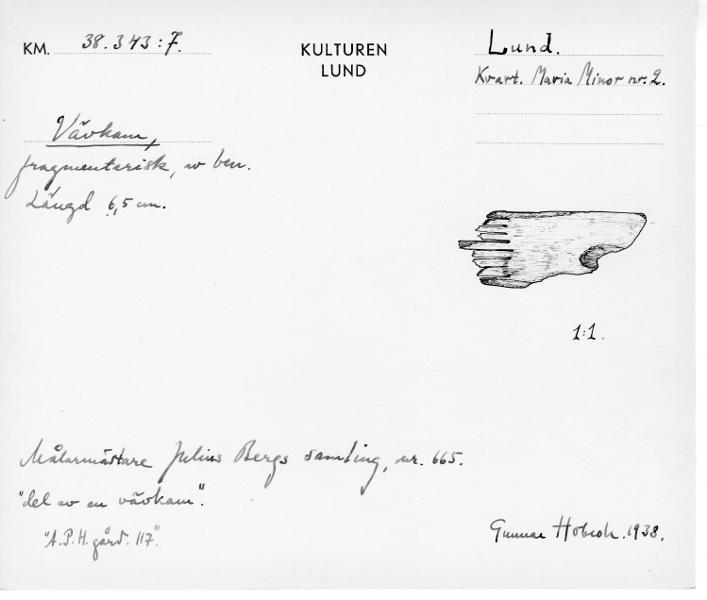 KM. 38.343:7.
KULTUREN
LUND
Lund.
Kvart. Maria Minor nr. 2.
Vävkam,
fragmentarisk, av ben.
Längd 6,5 cm.
1:1.
Målarmästare Julius Bergs samling, nr. 665.
"del av en vävkam".
"A.P.H. gård. 117".
Gunnar 1938.